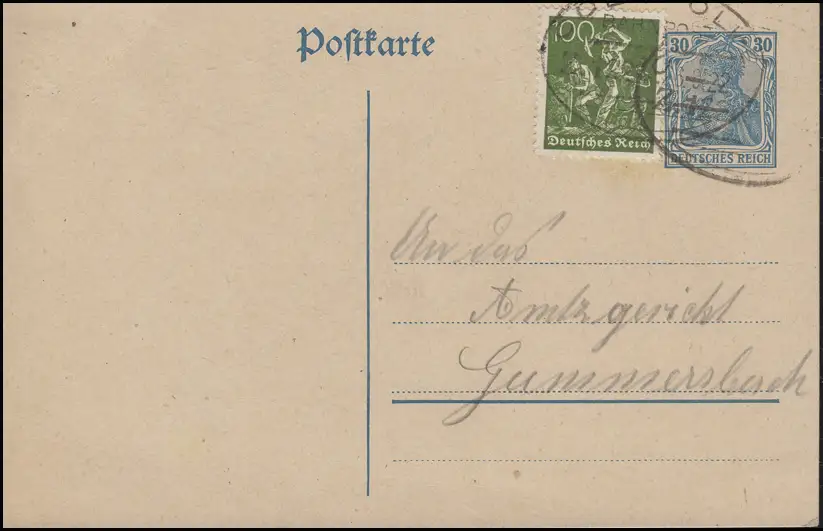 100
30 30
Postkarte
BAHNPOST
22
Deutsches Reich
DEUTSCHES REICH
An das
Amtsgericht
Gummersbach